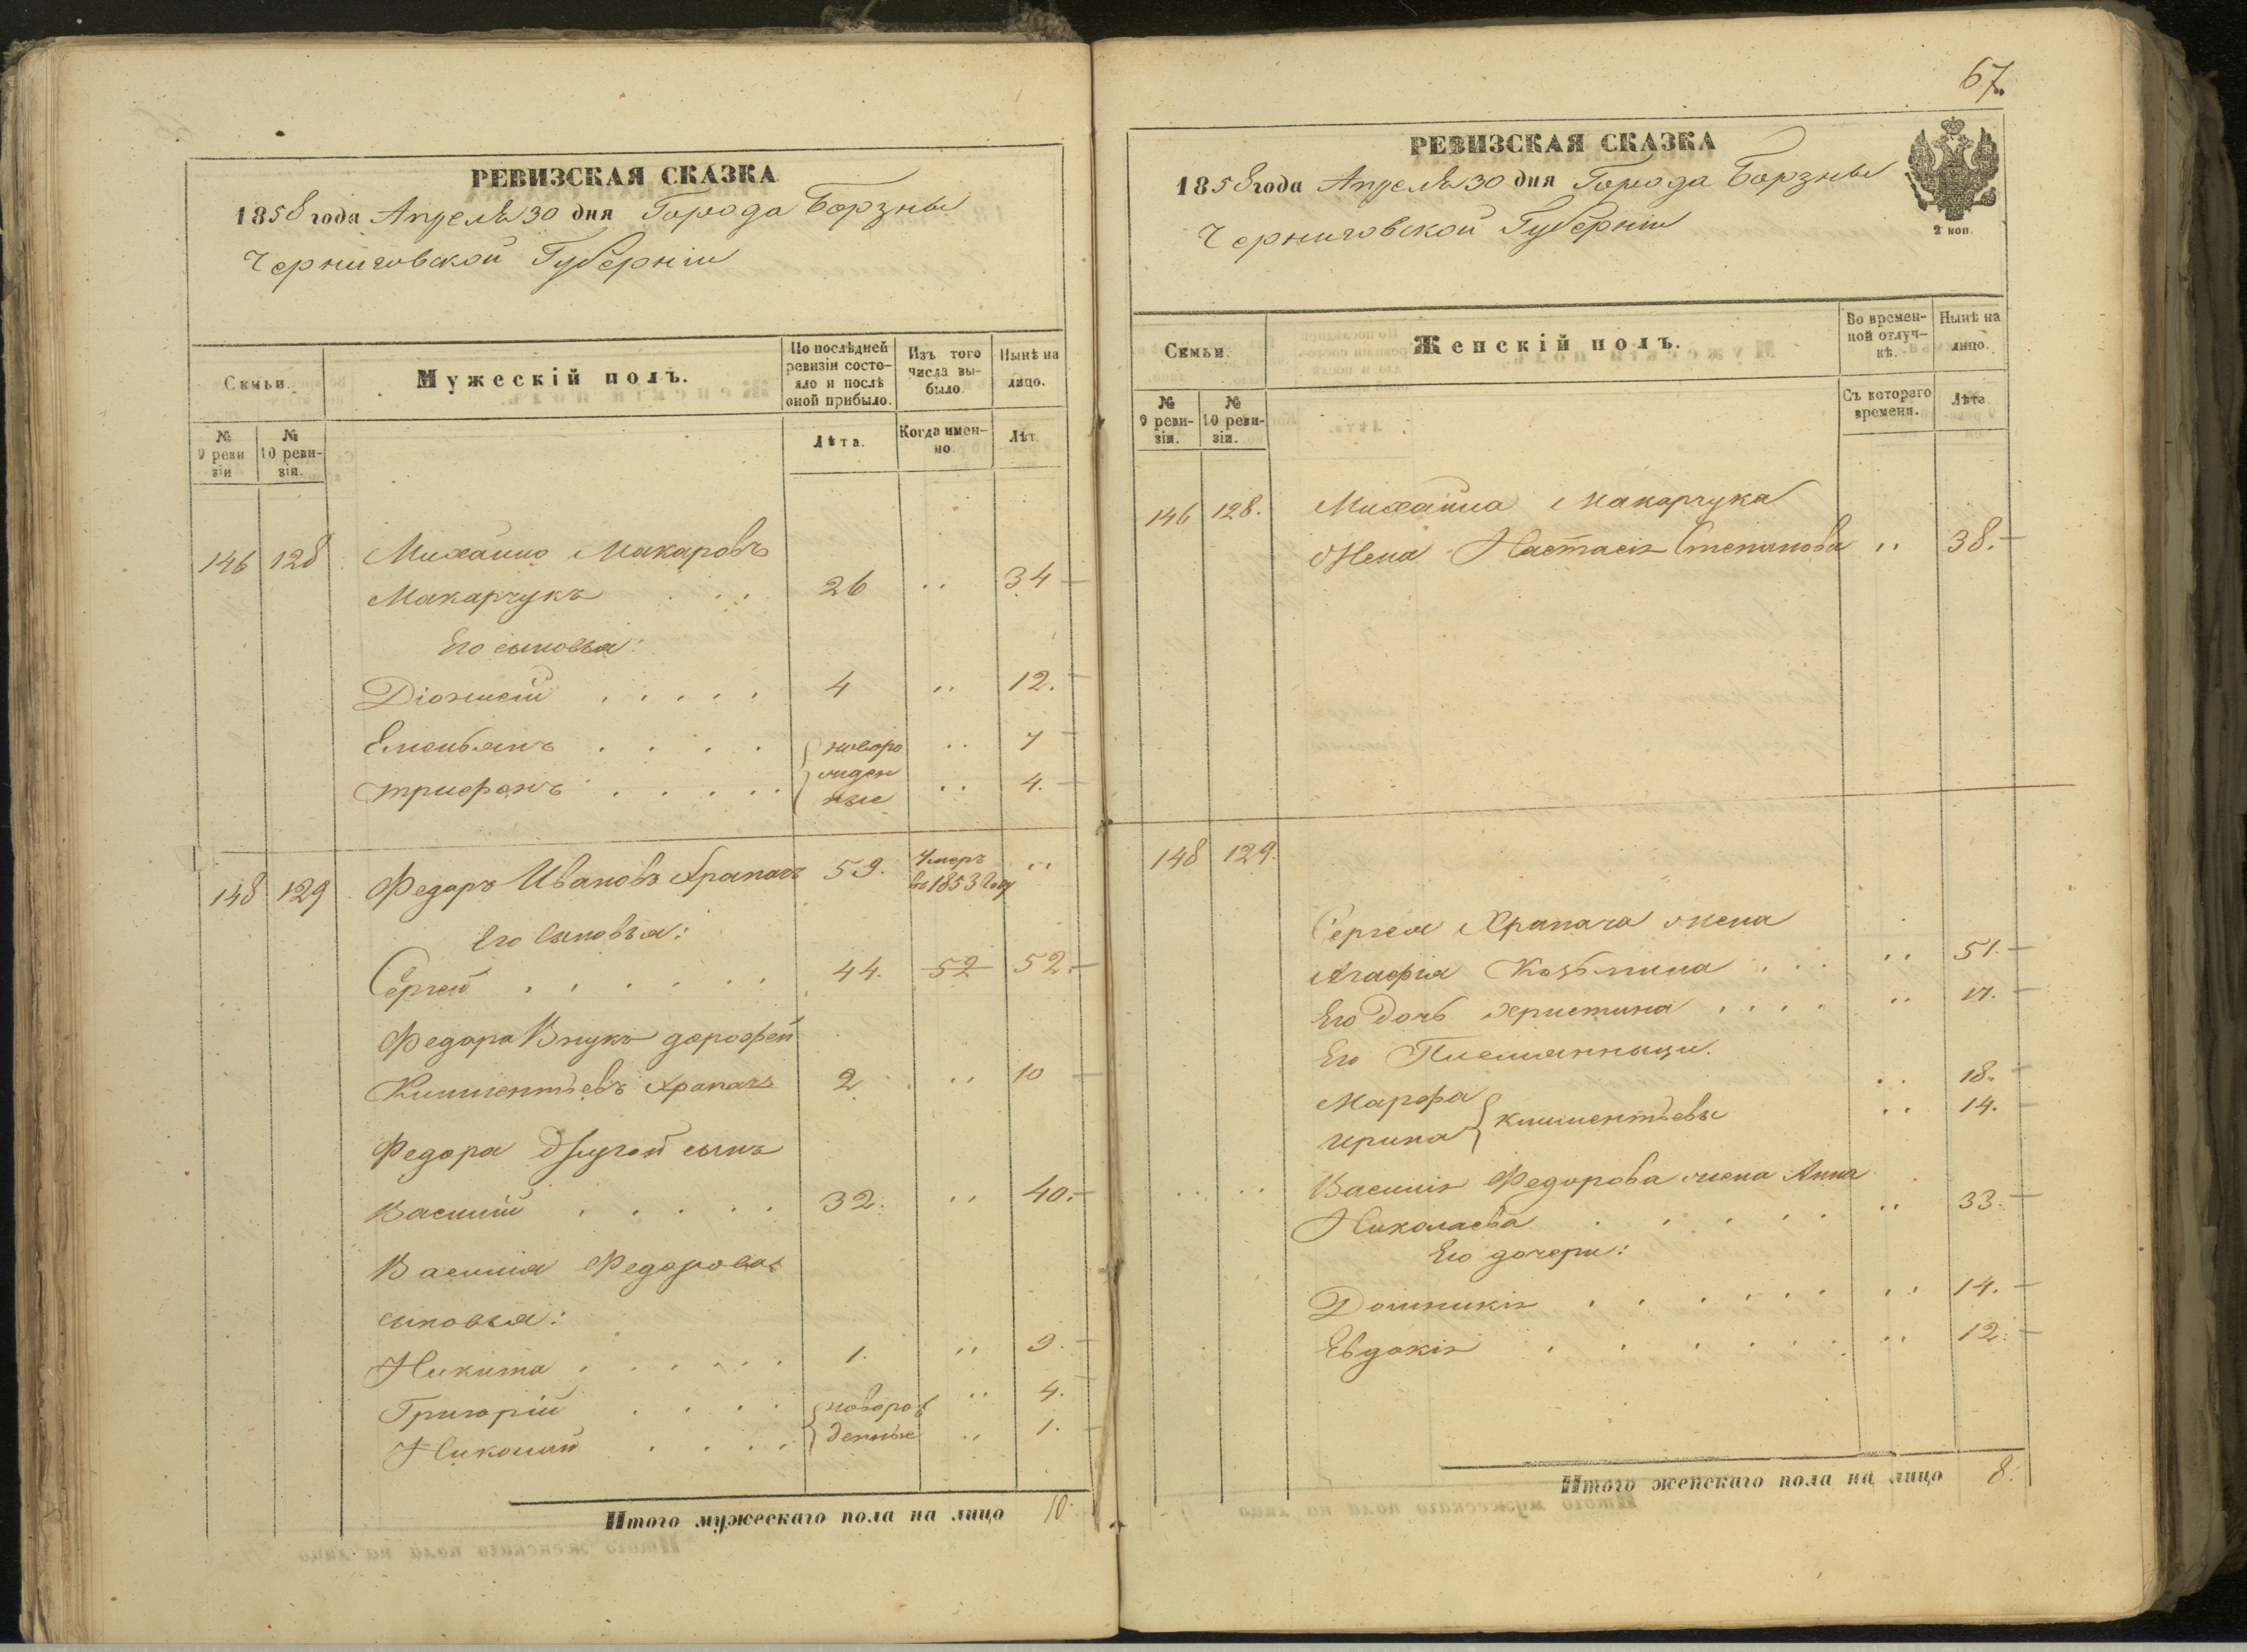 РЕВИЗСКАЯ СКАЗКА
1858 года Апреля 30 дня Города Борзны
Черниговской Губерніи
Семьи.
Мужескій полъ.
По послѣдней ревизіи состояло и послѣ оной прибыло.
Изъ того числа выбыло.
Нынѣ на лицо.
№ 9 ревизіи
№ 10 ревизіи.
Лѣта.
Когда именно
Лѣт.
146 128 Михайло Макаровъ
Макарчукъ . . . 26 „ 34
Его сыновья:
Діонисій . . . . . 4 „ 12.
Емельянъ . . . . новоро „ 7
Трифонъ . . . . . жден ные „ 4.
148 129 Федоръ Ивановъ Храпачъ 59. Умеръ въ 1853 году „
Его сыновья:
Сергей . . . . . . 44. 52 52.
Федора Внукъ дорофей
Климентьевъ Храпачъ 2. „ 10
Федора другой сынъ
Василій . . . . . 32. „ 40.
Василія Федорова
сыновья:
Никита . . . . . . 1. „ 9.
Григорій . . . . новорож „ 4.
Николай . . . . денные „ 1.
Итого мужескаго пола на лицо 10.
67.
РЕВИЗСКАЯ СКАЗКА
1858 года Апреля 30 дня Города Борзны
Черниговской Губерніи
2 коп.
Семьи.
Женскій полъ.
Во временной отлучкѣ.
Нынѣ на лицо.
№ 9 ревизіи.
№ 10 ревизіи.
Съ котораго времени.
Лѣта
146 128. Михайла Макарчука
Жена Настасія Степанова „ 38.
148 129.
Сергея Храпача жена
Агафія Козьмина . . . „ 51.
Его дочь Христина . . . . „ 17.
Его Племянницы.
Марфа „ 18.
Ирина } климентьевы „ 14.
„ „ Василія Федорова жена Анна
Николаева . . . . . . „ 33.
Его дочери:
Домникія . . . . . . „ 14.
Евдокія . . . . . . „ 12.
Итого женскаго пола на лицо 8.